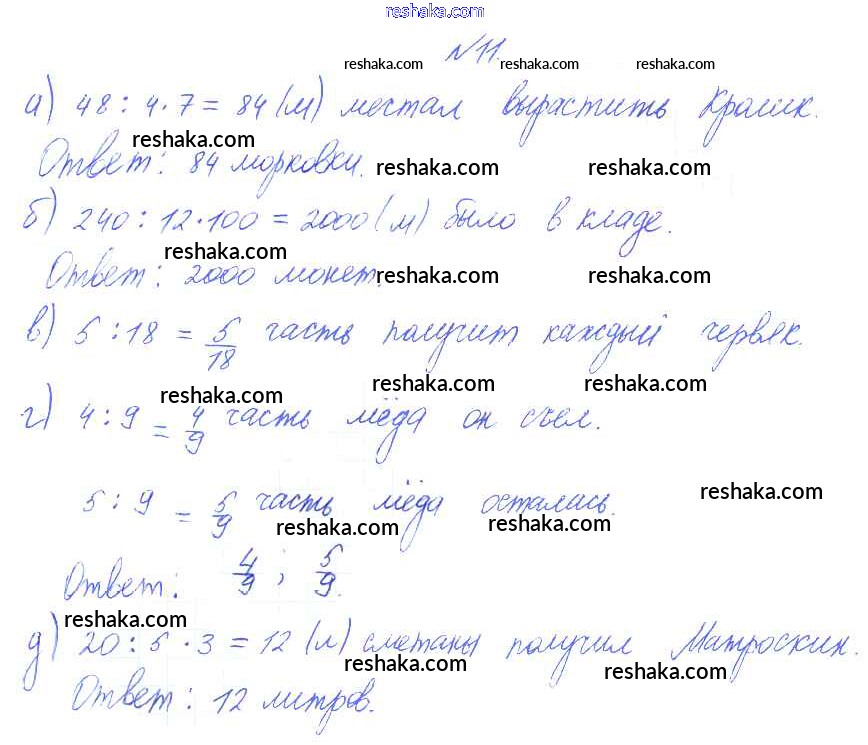 reshaka.com
№11.
reshaka.com reshaka.com reshaka.com
а) 48 : 4 · 7 = 84 (м) мечтал вырастить Кролик.
reshaka.com
Ответ: 84 морковки.
reshaka.com reshaka.com
б) 240 : 12 · 100 = 2000 (м) было в кладе.
reshaka.com
Ответ: 2000 монет.
reshaka.com reshaka.com
в) 5 : 18 = 5/18 часть получит каждый червяк.
reshaka.com reshaka.com reshaka.com
г) 4 : 9 = 4/9 часть мёда он съел.
reshaka.com
5 : 9 = 5/9 часть мёда осталась.
reshaka.com reshaka.com
Ответ: 4/9 ; 5/9.
reshaka.com
д) 20 : 5 · 3 = 12 (л) сметаны получил Матроскин.
reshaka.com reshaka.com
Ответ: 12 литров.